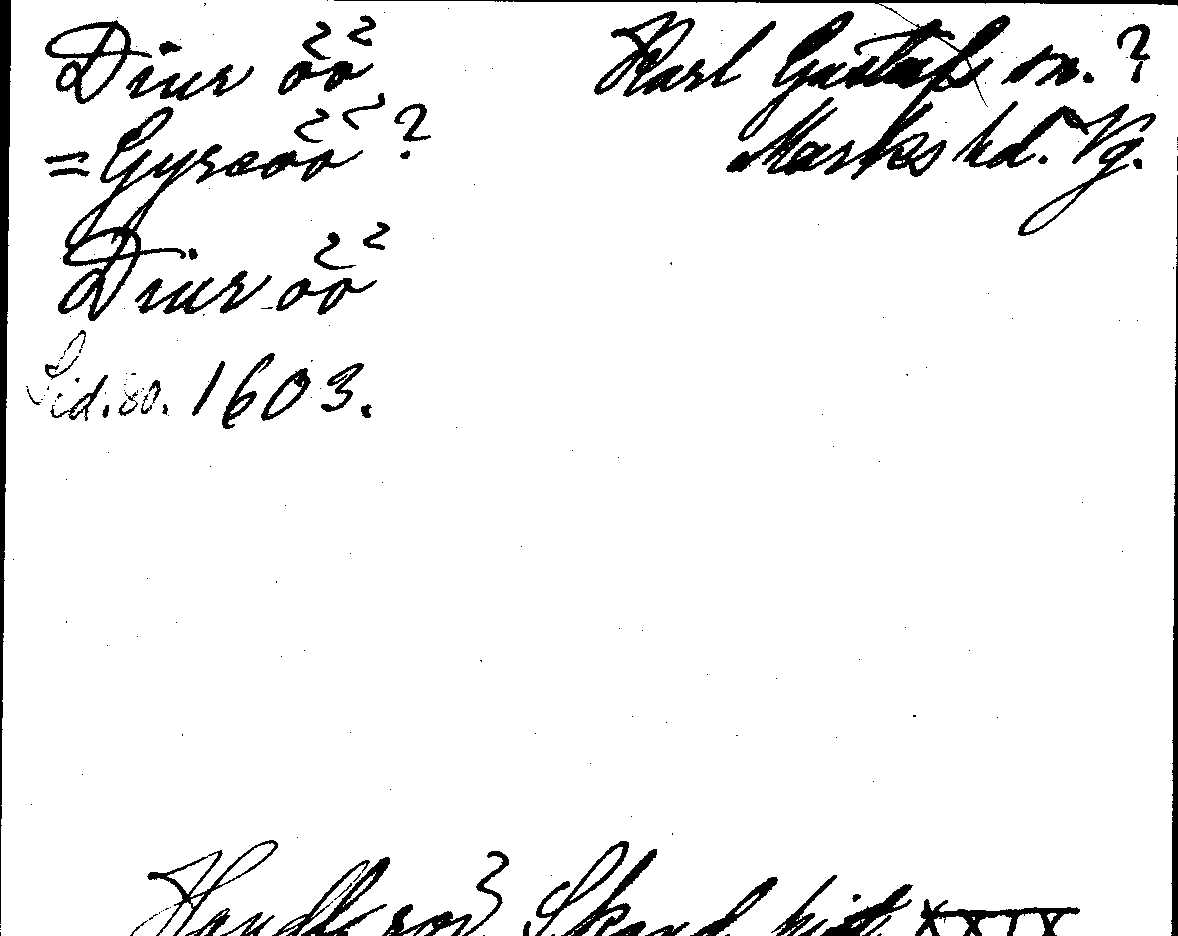 Diur öö Karl Gustafs sn. ?
=Gyreöö ? Marks hd. Vg.
Diur öö
Sid. 80. 1603.
Handl. rör Skand. hist XXIX